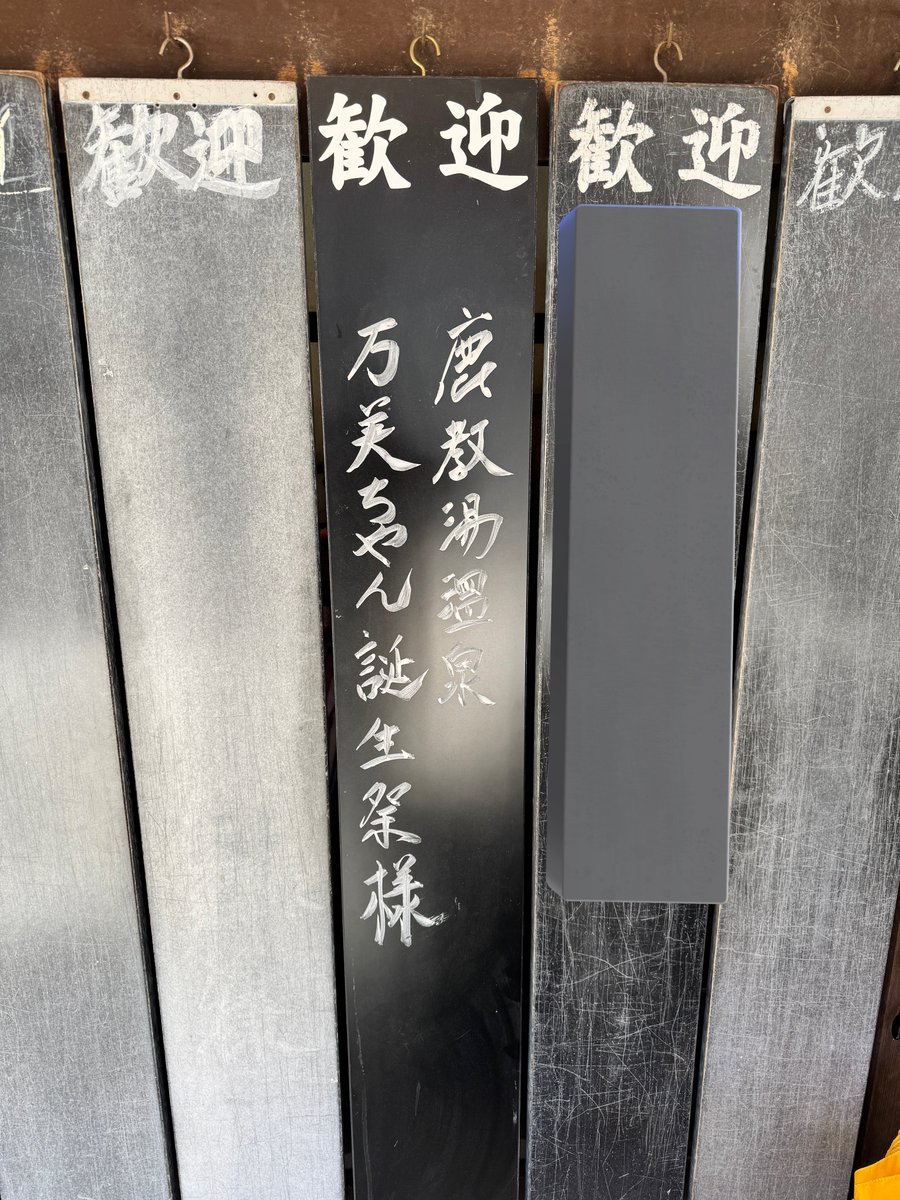 歓迎
歓迎
歓迎
鹿教湯温泉
万美ちゃん誕生祭様
歓迎
歓